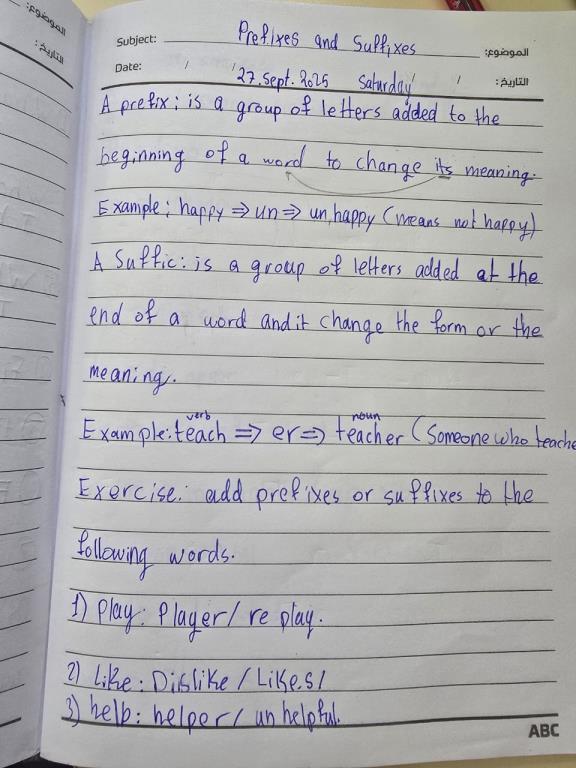 Subject: Prefixes and Suffixes الموضوع:
Date: / / 27.Sept.2025 Saturday / التاريخ:
A prefix: is a group of letters added to the
beginning of a word to change its meaning.
Example: happy ⇒ un ⇒ unhappy (means not happy)
A Suffic: is a group of letters added at the
end of a word and it change the form or the
meaning.
verb noun
Example: teach ⇒ er ⇒ teacher (Someone who teache
Exercise: add prefixes or suffixes to the
following words.
1) Play: Player / re play.
2) Like: Dislike / Likes /
3) helb: helper / un helpful.
ABC
الموضوع:
التاريخ: